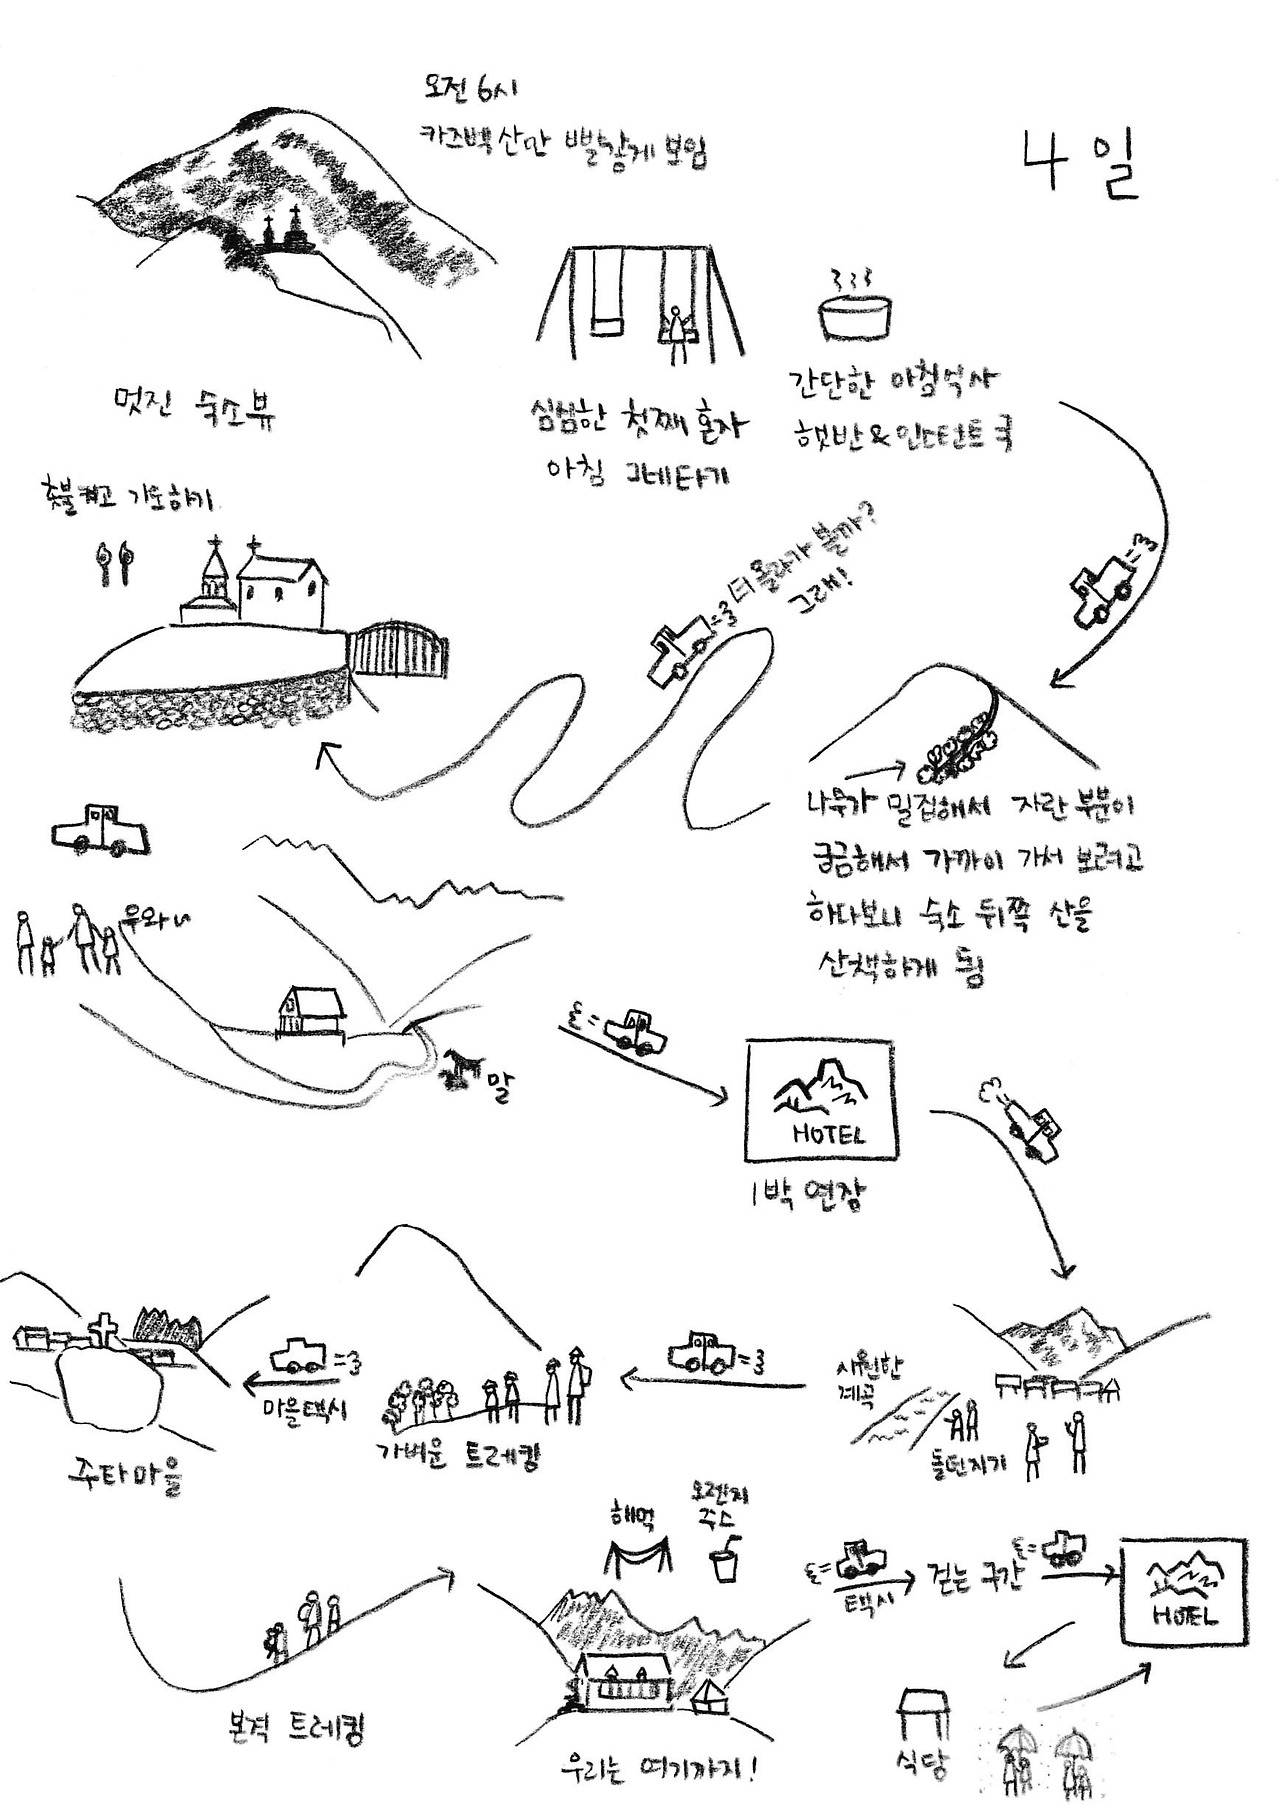 오전 6시
카즈벡산만 빨갛게 보임
4일
멋진 숙소뷰
심심한 첫째 혼자
아침 그네타기
간단한 아침식사
햇반 & 인스턴트 국
촛불켜고 기도하기
더 올라가 볼까?
그래!
나무가 밀집해서 자란 부분이
궁금해서 가까이 가서 보려고
하다보니 숙소 뒤쪽 산을
산책하게 됨
우와~
말
HOTEL
1박 연장
시원한
계곡
돌던지기
가벼운 트레킹
마을택시
주타마을
본격 트레킹
해먹
오렌지
주스
우리는 여기까지!
택시
걷는 구간
HOTEL
식당